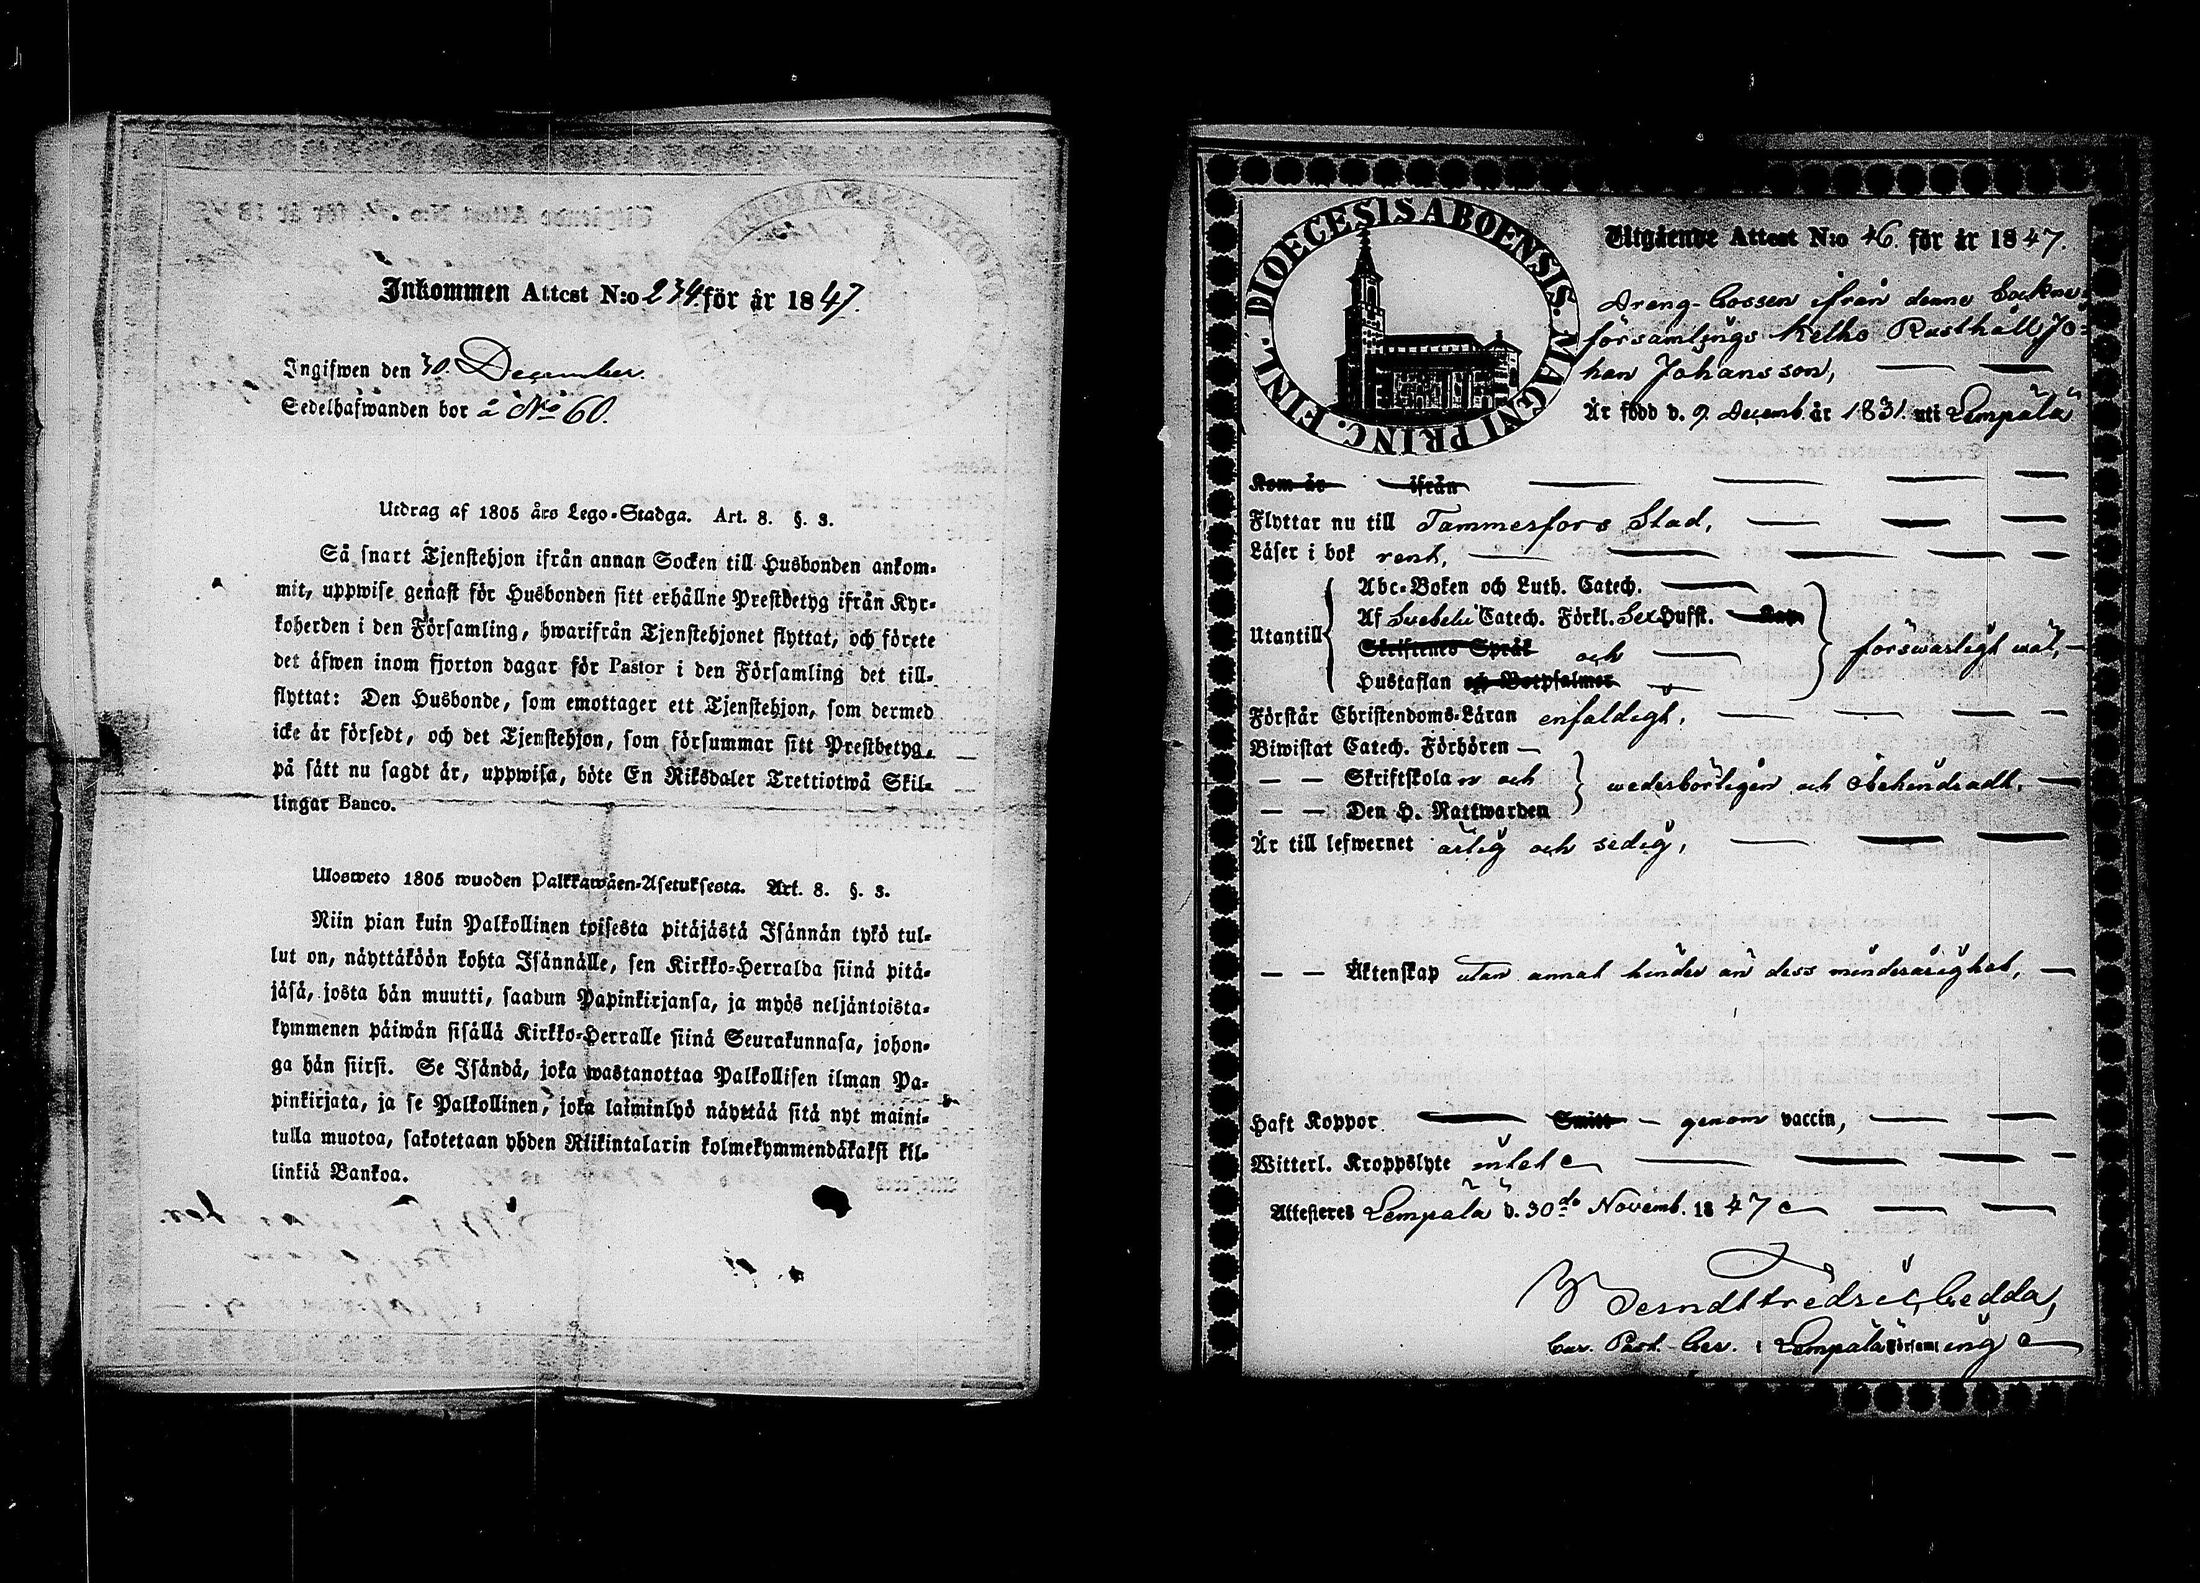 Inkommen Attest N:o 234 för år 1847.
Ingifwen den 30. December.
Sedelhafwanden bor å No 60.
Utdrag af 1805 års Lego-Stadga. Art. 8. §. 3.
Så snart Tjenstehjon ifrån annan Socken till Husbonden ankom-
mit, uppwise genast för Husbonden sitt erhållne Prestbetyg ifrån Kyr-
koherden i den Församling, hwarifrån Tjenstehjonet flyttat, och förete
det äfwen inom fjorton dagar för Pastor i den Församling det till-
flyttat: Den Husbonde, som emottager ett Tjenstehjon, som dermed
icke är försedt, och det Tjenstehjon, som försummar sitt Prestbetyg,
på sätt nu sagdt är, uppwisa, böte En Riksdaler Trettiotwå Skil-
lingar Banco.
Ulosweto 1805 wuoden Palkkawäen-Asetuksesta. Art. 8. §. 3.
Niin pian kuin Palkollinen toisesta pitäjästä Isännän tykö tul-
lut on, näyttäköön kohta Isännälle, sen Kirkko-Herralda siinä pitä-
jäsä, josta hän muutti, saadun Papinkirjansa, ja myös neljäntoista-
kymmenen päiwän sisällä Kirkko-Herralle siinä Seurakunnasa, johon-
ga hän siirsi. Se Isändä, joka wastanottaa Palkollisen ilman Pa-
pinkirjata, ja se Palkollinen, joka laiminlyö näyttää sitä nyt maini-
tulla muotoa, sakotetaan yhden Riikintalarin kolmekymmendäkaksi kil-
linkiä Bankoa.
DIOECESIS ABOENSIS. MAGNI PRINC. FINL.
Utgående Attest N:o 46. för år 1847.
Dreng-Gossen ifrån denne Sockne-
församlings Kelho Rusthåll, Jo-
han Johansson,
Är född d. 9. Decemb. år 1831. uti Lempälä
Kom år ifrån
Flyttar nu till Tammerfors Stad,
Läser i bok rent,
Utantill
Abc-Boken och Luth. Catech.
Af Svebelii Catech. Förkl. Sex Hufst.
Skriftenes Språk och
Hustaflan och Botpsalmer
försvarligt väl,
Förstår Christendoms-Läran enfaldigt,
Biwistat Catech. Förhören
Skriftskolan och
Den H. Nattwarden
wederbörligen och obehindradt,
Är till lefwernet ärlig och sedig,
Äktenskap utan annat hinder än dess minderårighet,
Haft Koppor Smitt genom vaccin,
Witterl. Kroppslyte intet
Attesteres Lempälä d. 30de Novemb. 1847
Berndt Fredric Gedda,
Cur. Past. Ger. i Lempälä Församling